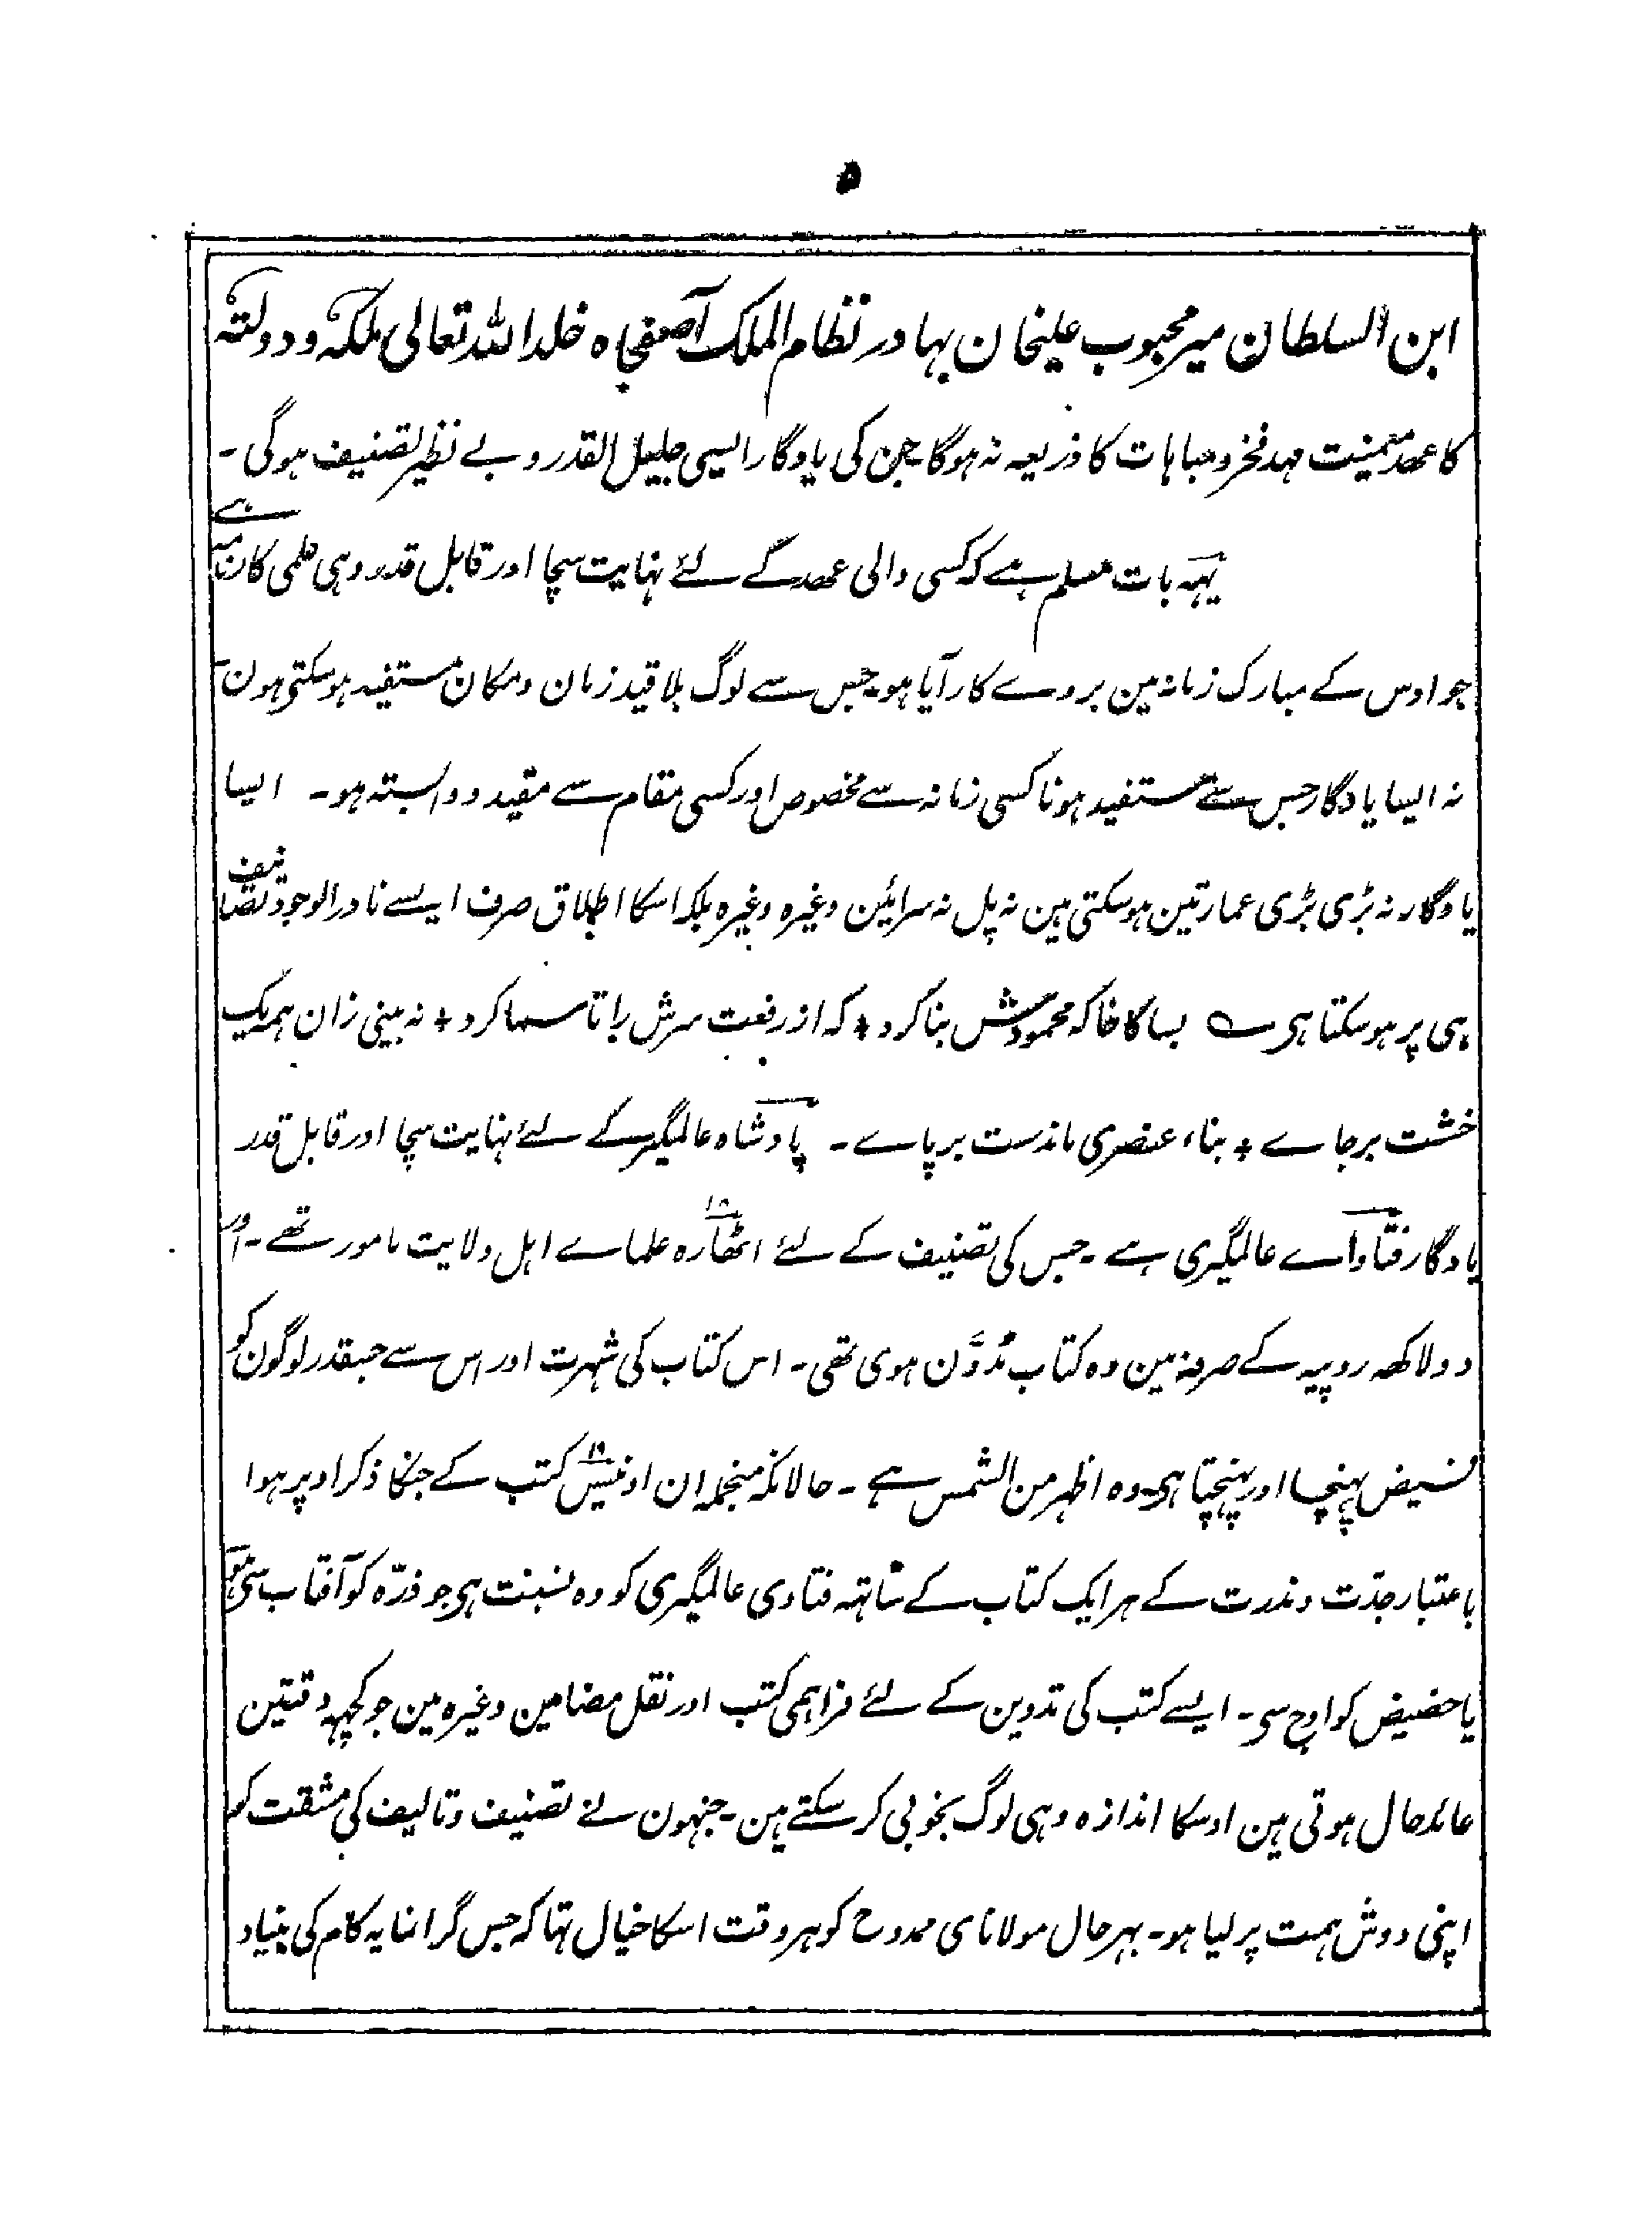 ۵
ابن السلطان میر محبوب علیخان بہادر نظام الملک آصفجاہ خلد اللہ تعالی ملکہ و دولتہ
کا عھد میمنت مہد فخر و مباہات کا ذریعہ نہ ہوگا جن کی یادگار ایسی جلیل القدر و بے نظیر تصنیف ہوگی ۔
یہہ بات مسلم ہے کہ کسی والی عھد کے لئے نہایت سچا اور قابل قدر وہی علمی کارنامہ ہے
جو اوس کے مبارک زمانہ مین بروے کار آیا ہو جس سے لوگ بلا قید زمان و مکان مستفید ہو سکتی ہون
نہ ایسا یادگار جس سے مستفید ہونا کسی زمانہ سے مخصوص اور کسی مقام سے مقید و وابستہ ہو ۔ ایسا
یادگار نہ بڑی بڑی عمارتین ہو سکتی ہین نہ پل نہ سرائین وغیرہ وغیرہ بلکہ اسکا اطلاق صرف ایسے نادر الوجود تصانیف
ہی پر ہو سکتا ہی ؎ بسا کاخا کہ محمودش بنا کرد + کہ از رفعت سرش را تا سما کرد + نہ بینی زان ہمہ یک
خشت بر جاے + بناء عنصری ماندست بر پاے ۔ پادشاہ عالمگیر کے لئے نہایت سچا اور قابل قدر
یادگار فتاواے عالمگیری ہے ۔ جس کی تصنیف کے لئے اٹھارہ ۱۸ علماے اہل ولایت مامور تھے ۔ اور
دو لاکھہ روپیہ کے صرفہ مین وہ کتاب مُدوَّن ہوی تھی ۔ اس کتاب کی شہرت اور اس سے جسقدر لوگون کو
فیض پہنچا اور پہنچتا ہی وہ اظہر من الشمس ہے ۔ حالانکہ منجملہ ان اونیس ۱۹ کتب کے جنکا ذکر اوپر ہوا
باعتبار جدّت و ندرت کے ہر ایک کتاب کے ساتہہ فتاوی عالمگیری کو وہ نسبت ہی جو ذرّہ کو آفتاب سی ہو
یا حضیض کو اوج سی ۔ ایسے کتب کی تدوین کے لئے فراہمی کتب اور نقل مضامین وغیرہ مین جو کچہہ دقتین
عائد حال ہوتی ہین اوسکا اندازہ وہی لوگ بخوبی کر سکتے ہین ۔ جنہون نے تصنیف و تالیف کی مشقت کو
اپنی دوش ہمت پر لیا ہو ۔ بہر حال مولانای ممدوح کو ہر وقت اسکا خیال تہا کہ جس گرانمایہ کام کی بنیاد